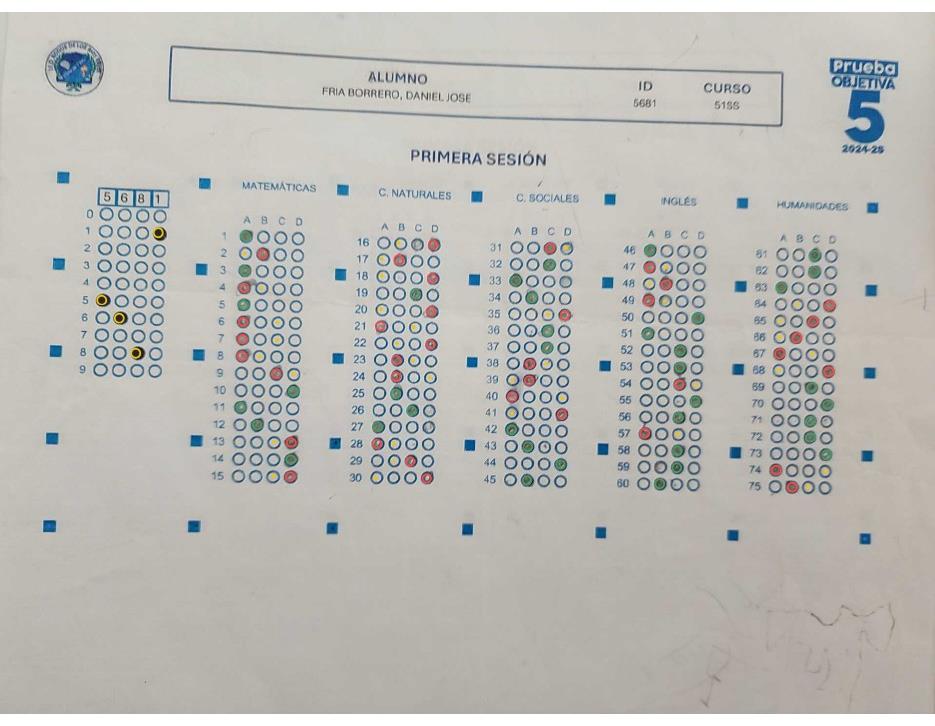 ALUMNO
FRIA BORRERO, DANIEL JOSE
ID
5681
CURSO
51SS
Prueba
OBJETIVA
5
2024-25
PRIMERA SESIÓN
5 6 8 1
0
1
2
3
4
5
6
7
8
9
MATEMÁTICAS
A B C D
1
2
3
4
5
6
7
8
9
10
11
12
13
14
15
C. NATURALES
A B C D
16
17
18
19
20
21
22
23
24
25
26
27
28
29
30
C. SOCIALES
A B C D
31
32
33
34
35
36
37
38
39
40
41
42
43
44
45
INGLÉS
A B C D
46
47
48
49
50
51
52
53
54
55
56
57
58
59
60
HUMANIDADES
A B C D
61
62
63
64
65
66
67
68
69
70
71
72
73
74
75